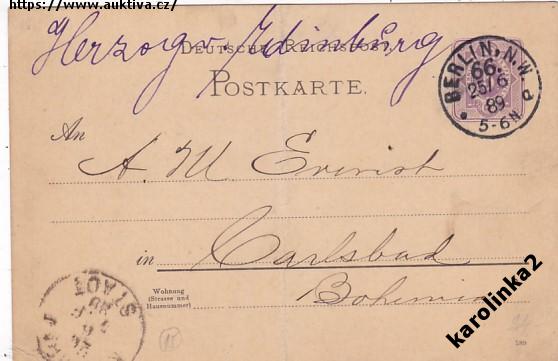 https://www.auktiva.cz/
Herzog v. Edinburg
DEUTSCHE REICHSPOST
POSTKARTE.
BERLIN, N.W.
66.
25/6
89
5-6N
An
A. M. Everist
in Carlsbad
Wohnung
(Strasse und
Hausnummer)
Bohemia
STADT
189
karolinka2